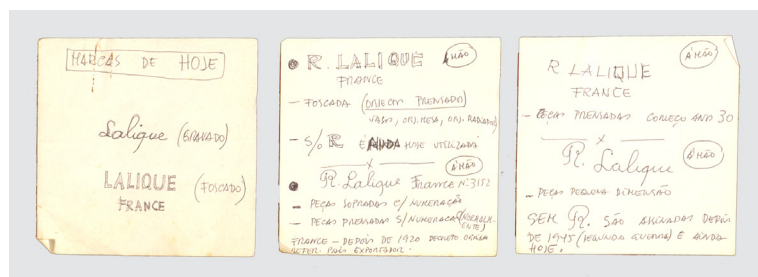 MARCAS DE HOJE
Lalique (GRAVADO)
LALIQUE (FOSCADO)
FRANCE
R. LALIQUE À MÃO
FRANCE
- FOSCADA (OBJECTOS PRENSADO)
VASOS, OBJ. MESA, OBJ.
- S/O R É AINDA HOJE UTILIZADA
x
À MÃO
R. Lalique France Nº 3152
- PEÇAS SOPRADAS C/ NUMERAÇÃO
- PEÇAS PRENSADAS S/ NUMERAÇÃO (NORMALMENTE)
FRANCE - DEPOIS DE 1920 DECRETO OBRIGA
REFER. PAÍS EXPORTADOR.
R LALIQUE À MÃO
FRANCE
- PEÇAS PRENSADAS COMEÇO ANO 30
x
R. Lalique À MÃO
- PEÇAS PEQUENA DIMENSÃO
SEM R. SÃO ASSINADAS DEPOIS
DE 1945 (SEGUNDA GUERRA) E AINDA
HOJE.